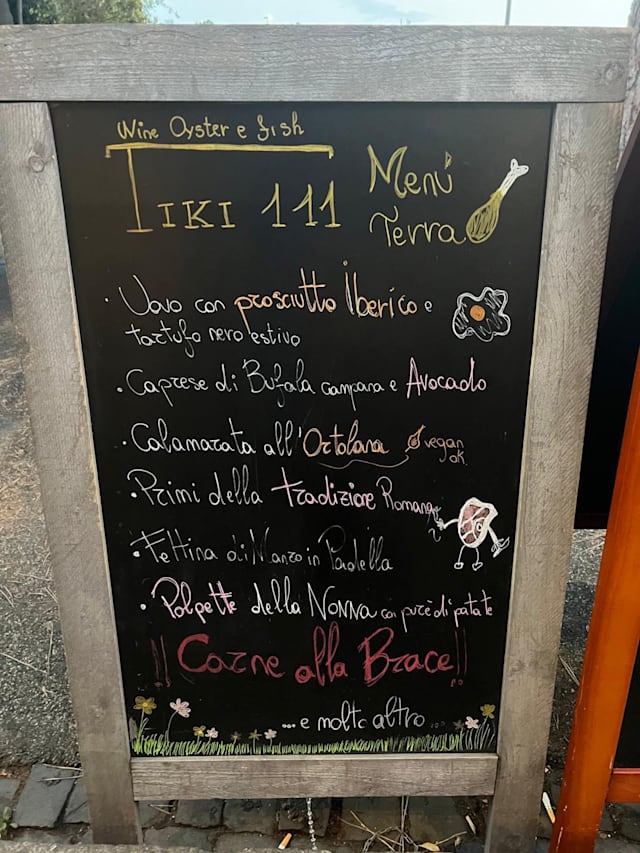 Wine Oyster e fish
TIKI 111
Menú
Terra
· Uovo con prosciutto Iberico e
tartufo nero estivo
· Caprese di Bufala campana e Avocado
· Calamarata all'Ortolana vegan
ok
· Primi della tradizione Romana
· Fettina di Manzo in Padella
· Polpette della Nonna con purè di patate
!! Carne alla Brace !!
... e molto altro ...